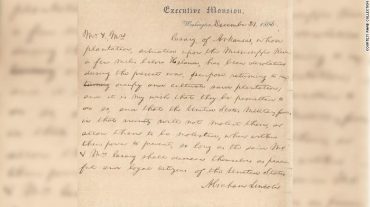 Executive Mansion,
Washington, December 21, 1863
Mr. & Mrs. Craig of Arkansas, whose
plantation, situation upon the Mississippi River
a few miles below Helena, has been desolated
during the present war, purpose returning to
occupy and cultivate said plantation;
and it is my wish that they be permitted to
do so, and that the United States Military forces
in that vicinity will not molest them, or
allow them to be molested, when within
their power to prevent, so long as the said Mr.
& Mrs. Craig shall demean themselves as peace-
ful and loyal citizens of the United States
Abraham Lincoln
COURTESY RAAB COLLECTION